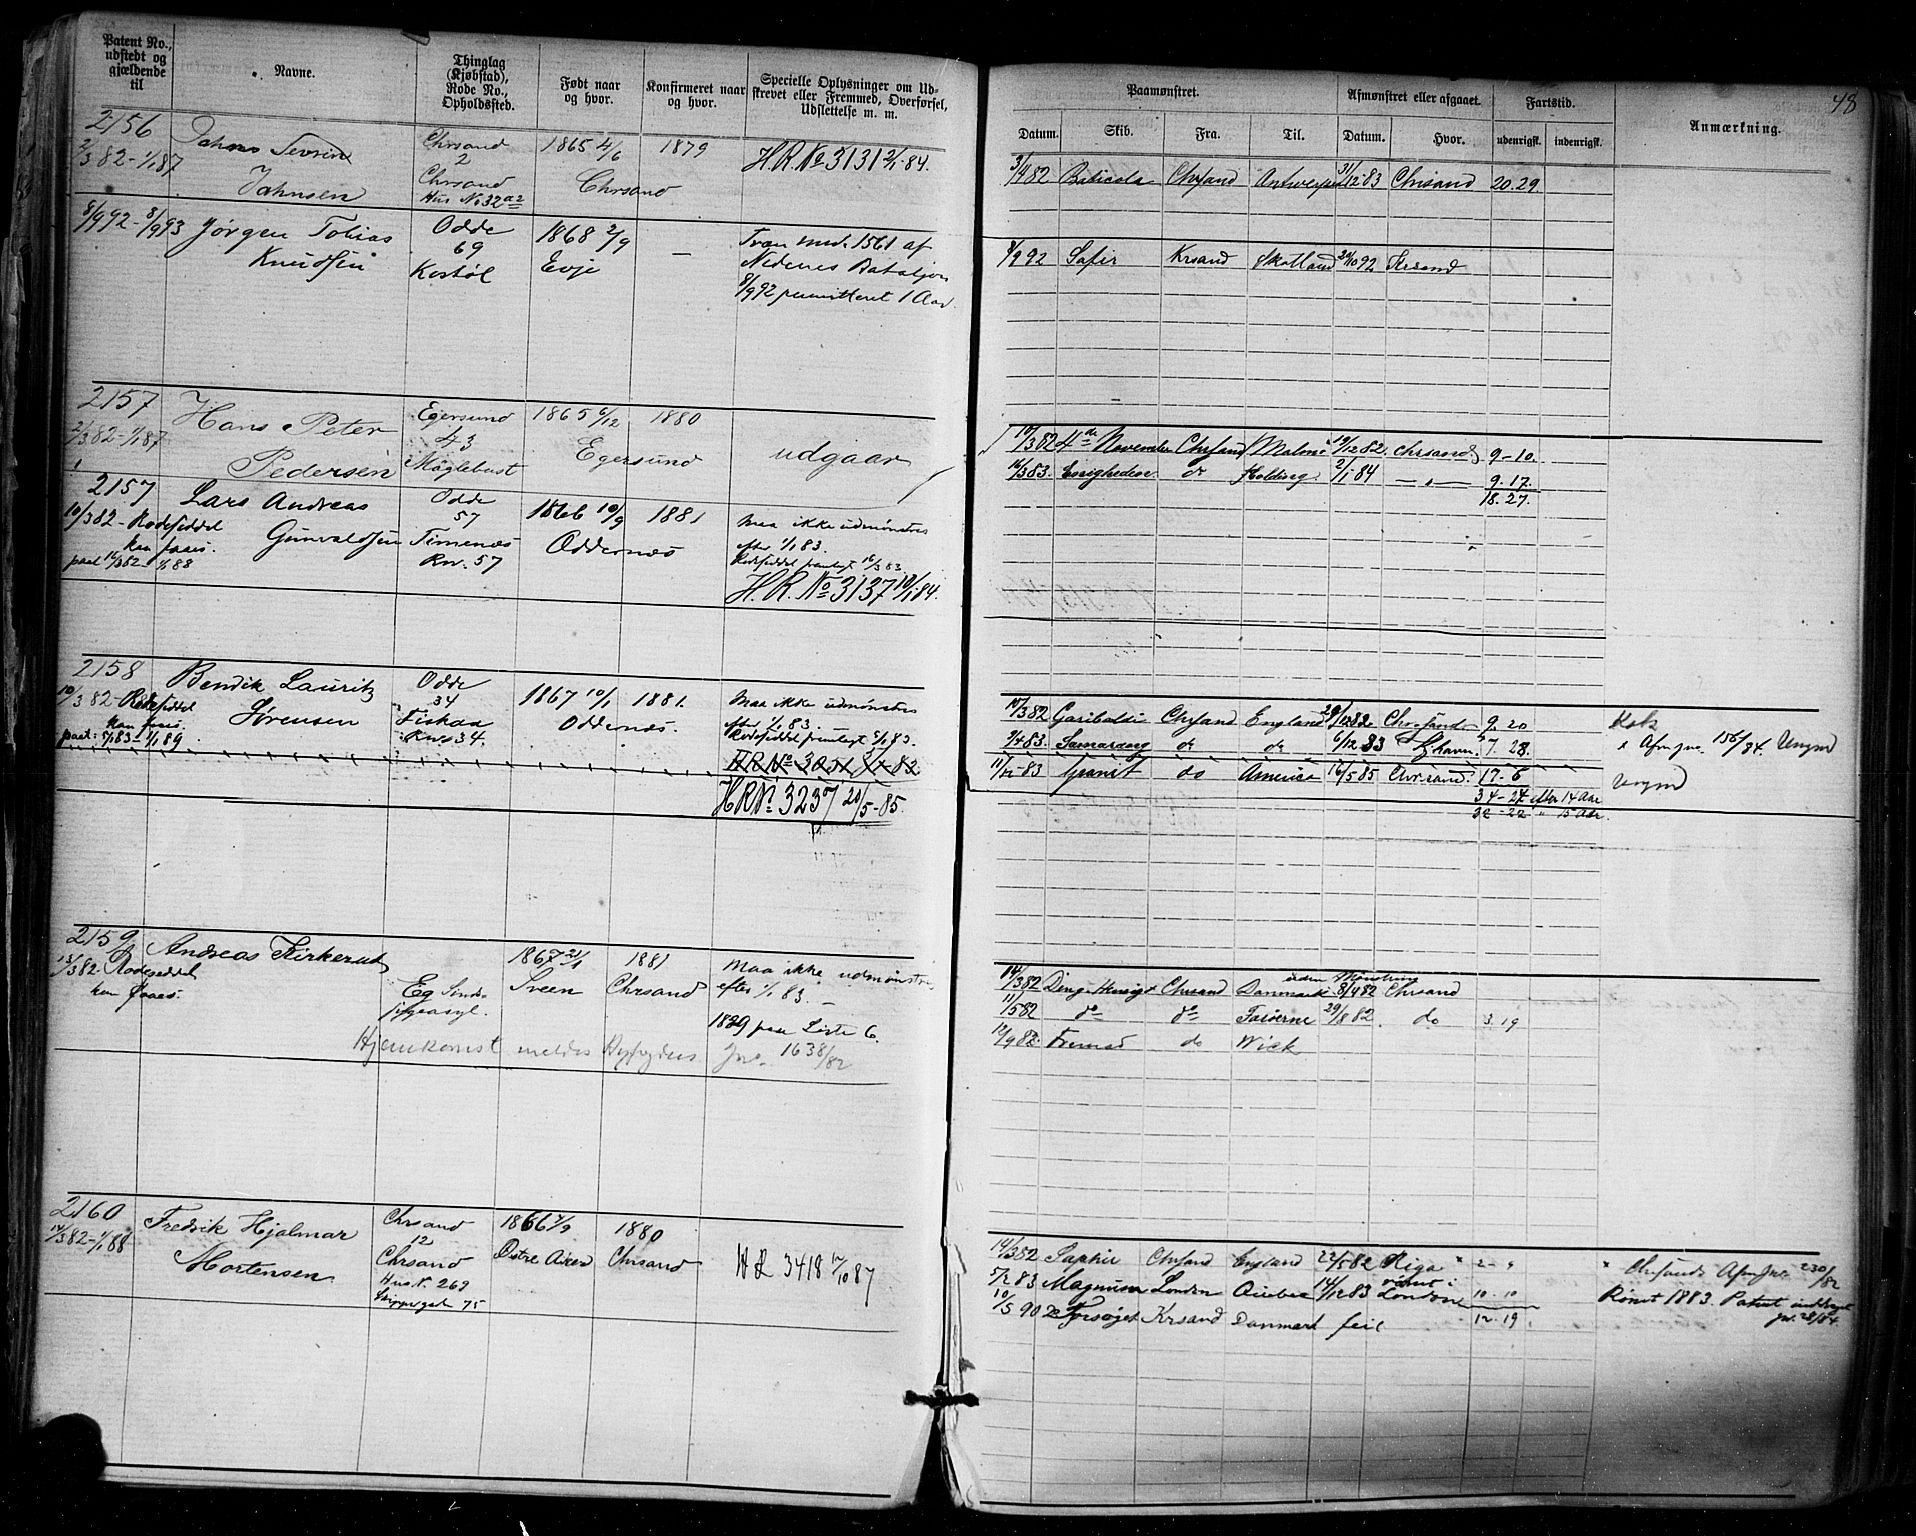 Patent No.,
udstedt og
gjældende
til
Navne.
Thinglag
(Kjøbstad),
Rode No.,
Opholdssted.
Født naar
og hvor.
Konfirmeret naar
og hvor.
Specielle Oplysninger om Ud-
skrevet eller Fremmed, Overførsel,
Udslettelse m. m.
2156
2/3 82-1/1 87
Jahns Sevrin
Jahnsen
Chrsand
2
Chrsand
Hus No 32 a2
1865 4/6
Chrsand
1879
H.R. No 3131 2/1-84.
8/9 92-8/9 93
Jørgen Tobias
Knudsen
Odde
69
Kostøl
1868 2/9
Evje
—
Træn md. 1561 af
Nedenes Bataljon
8/9 92 permitteret 1 Aar.
2157
2/3 82-1/1 87
Hans Peter
Pedersen
Egersund
43
Møglebust
1865 6/12
Egersund
1880
udgaar
2157
10/3 82- Rodeseddel
kan faaes.
pael 16/3 82-1/1 88
Lars Andreas
Gunvaldsen
Odde
57
Timenæs
Rw. 57
1866 10/9
Oddernæs
1881
Maa ikke udmønstres
efter 1/1 83.
Rodeseddel fremlagt 16/3 83.
H.R. No 3137 10/1 84.
2158
10/3 82- Rodeseddel
kan faaes
paet: 5/1 83-1/1 89
Bendik Lauritz
Sørensen
Odde
34
Fiskaa
Rw 34.
1867 10/1
Oddernæs.
1881.
Maa ikke udmønstres
efter 1/1 83
Rodeseddel fremlagt 5/1 83.
H.R. No 3237 20/5-85.
2159
13/3 82- Rodeseddel
kan faaes.
Andreas Kirkerud
Eg Sinds-
sygeasyl.
1867 21/1
Sveen
1881
Chrsand
Maa ikke udmønstres
efter 1/1 83. —
1829 paa Liste 6.
Hjemkomst meldes
Jno. 1638/82
2160
14/3 82-1/1 88
Fredrik Hjalmar
Mortensen
Chrsand
12
Chrsand
Hus N. 269
Skippergade 75
1866 7/9
Østre Aker
1880
Chrsand
H R 3418 17/10 87
48
Paamønstret.
Afmønstret eller afgaaet.
Fartstid.
Anmærkning.
Datum.
Skib.
Fra.
Til.
Datum.
Hvor.
udenrigsk.
indenrigsk.
3/4 82 Baticola Chrsand Antwerpen 31/12-83 Chrsand 20.29
8/9 92 Safir Krsand Skotland 29/10 92 Krsand
10/3 82 4de November Chrsand Malmø 19/12 82 Chrsand 9-10.
16/3 83. Enigheden do Kolding. 2/1 84 —„— 9.17
18.27.
10/3 82 Garibaldi Chrsand England 29/12 82 Chrsand 9.20
9/4 83. Samarang do do 6/12 83 Fhavn 7.28.
i Afm jno. 156/84. Ungmd
11/12-83 Granit do America 16/5 85 Chrsand. 17-6 Ungmd
34-24 efter 14 Aar
32-22 „ 15 Aar.
uden Mønstring
14/3 82 Chrsand Danmark 8/4 82 Chrsand
11/5 82 do do Færøerne 29/8 82. do 3.19
12/9 82. Fremad do Wick
14/3 82 Saphir Chrsand England 22/5 82 Riga „ 2-„ „ Chrsands Afm Jno 230/82
5/2 83 Magnum London Quebec 14/12 83 rømt i London 10.10 Rømt 1883. Patent inddraget
jno. 28/84.
10/5 90 Forsøget Krsand Danmark feil 12.19